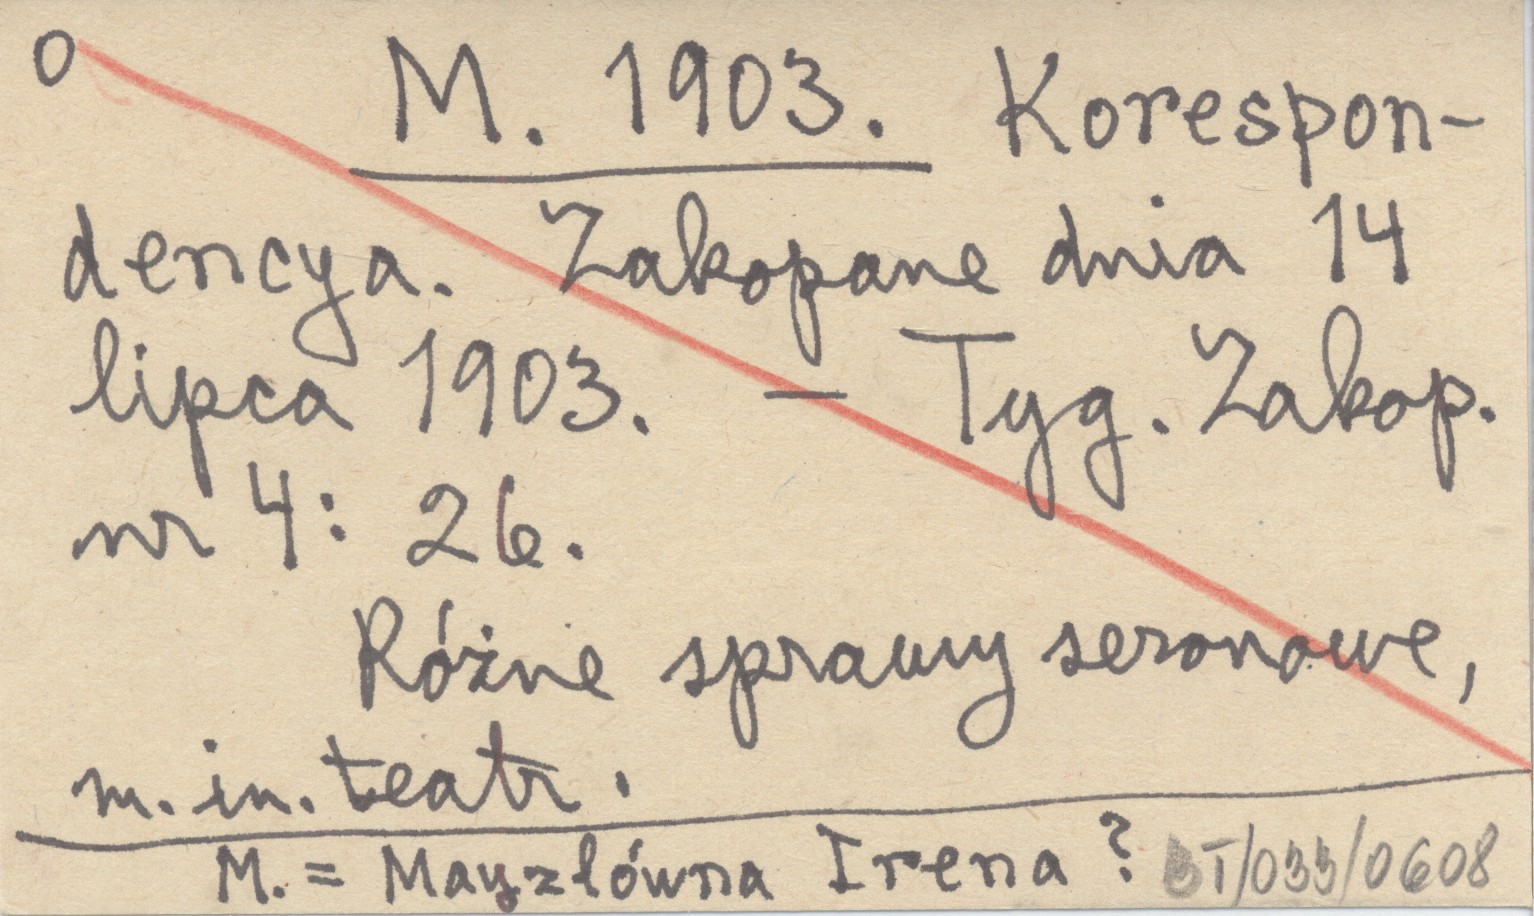 O M. 1903. Korespon-
dencya. Zakopane dnia 14
lipca 1903. — Tyg. Zakop.
nr 4: 26.
Różne sprawy sezonowe,
m. in. teatr.
M. = Mayzlówna Irena ? BT/033/0608